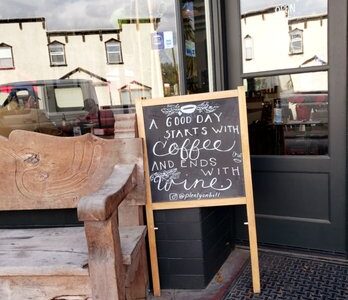 OPEN
A GOOD DAY
STARTS WITH
Coffee
AND ENDS
WITH
Wine.
@plentyonbell